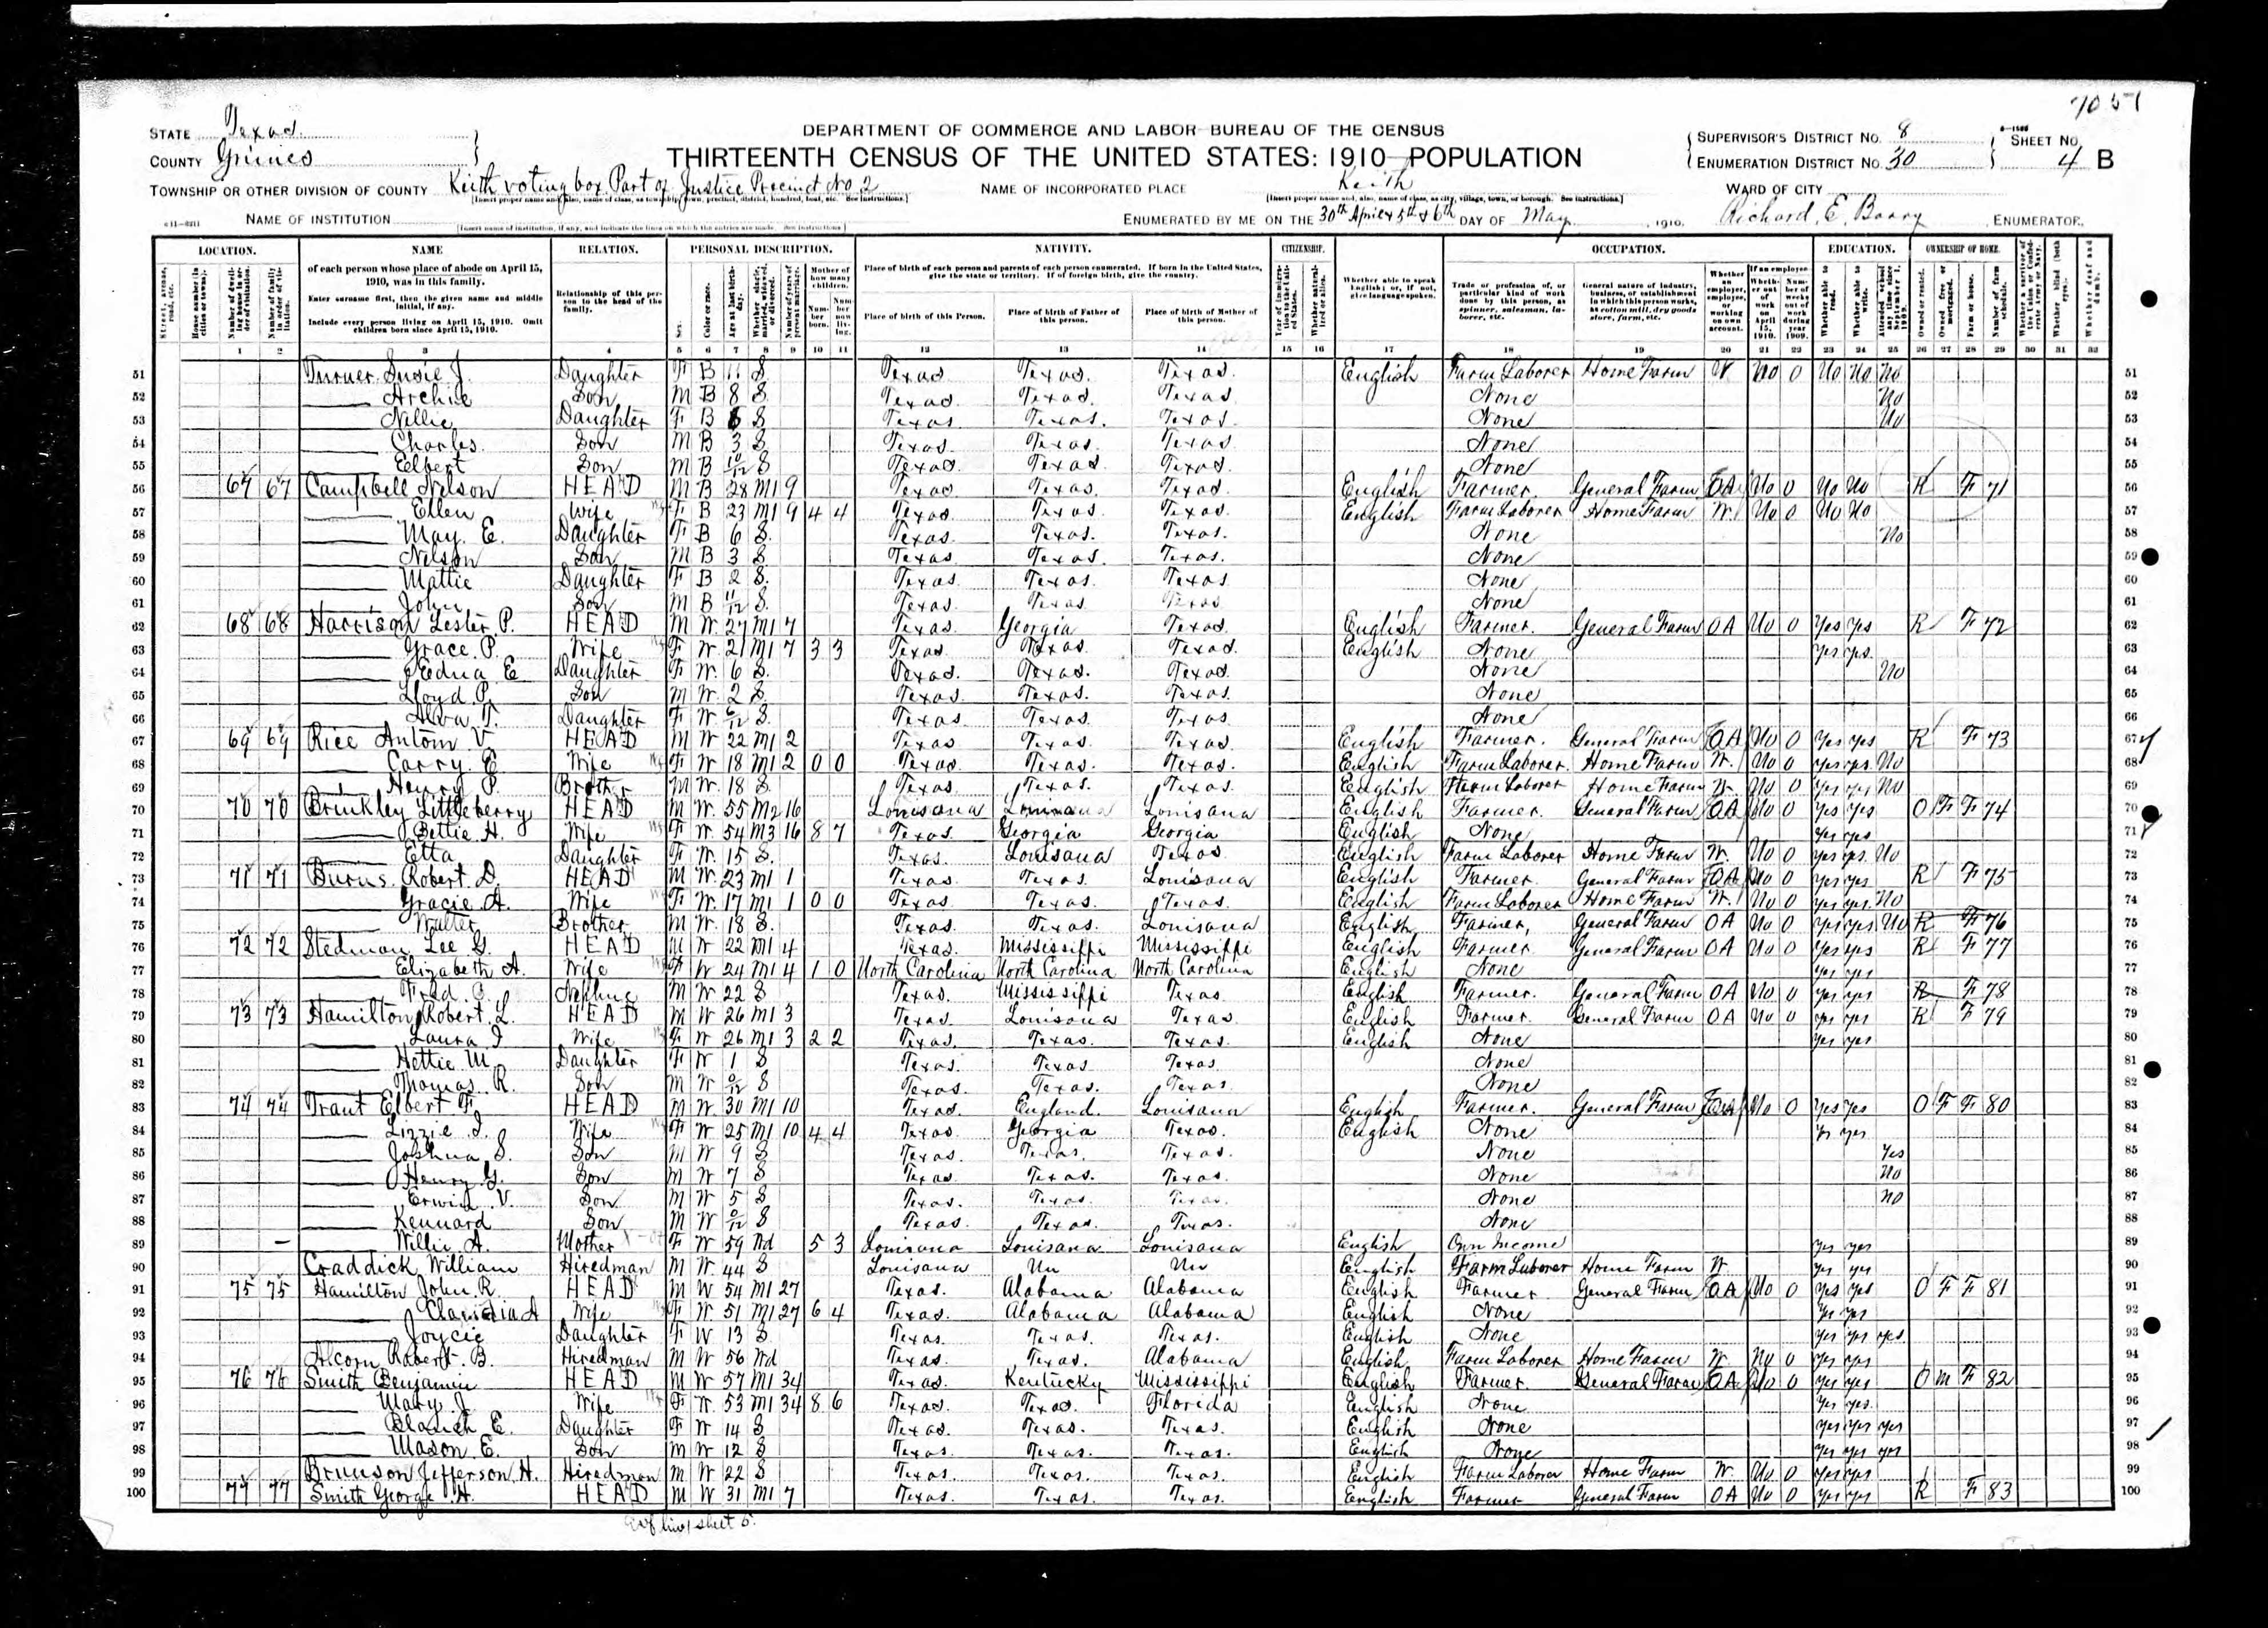 7051
STATE Texas
COUNTY Grimes
DEPARTMENT OF COMMERCE AND LABOR—BUREAU OF THE CENSUS
THIRTEENTH CENSUS OF THE UNITED STATES: 1910—POPULATION
SUPERVISOR'S DISTRICT NO. 8
ENUMERATION DISTRICT NO. 30
SHEET NO. 4 B
TOWNSHIP OR OTHER DIVISION OF COUNTY Keith voting box Part of Justice Precinct No 2
NAME OF INCORPORATED PLACE Keith
WARD OF CITY
NAME OF INSTITUTION
ENUMERATED BY ME ON THE 30th April & 5th & 6th DAY OF May, 1910. Richard E. Barry, ENUMERATOR.
LOCATION. NAME RELATION. PERSONAL DESCRIPTION. NATIVITY. CITIZENSHIP. OCCUPATION. EDUCATION. OWNERSHIP OF HOME.
of each person whose place of abode on April 15, 1910, was in this family.
Enter surname first, then the given name and middle initial, if any.
Include every person living on April 15, 1910. Omit children born since April 15, 1910.
Relationship of this person to the head of the family.
Place of birth of each person and parents of each person enumerated. If born in the United States, give the state or territory. If of foreign birth, give the country.
Place of birth of this Person. Place of birth of Father of this person. Place of birth of Mother of this person.
1 2 3 4 5 6 7 8 9 10 11 12 13 14 15 16 17 18 19 20 21 22 23 24 25 26 27 28 29 30 31 32
51 Turner Susie J. Daughter F B 11 S Texas Texas Texas English Farm Laborer Home Farm W No 0 No No No 51
52 Archie Son M B 8 S Texas Texas Texas None No 52
53 Nellie Daughter F B 6 S Texas Texas Texas None No 53
54 Charles Son M B 3 S Texas Texas Texas None 54
55 Elbert Son M B 10/12 S Texas Texas Texas None 55
56 67 67 Campbell Nelson HEAD M B 28 M1 9 Texas Texas Texas English Farmer General Farm OA No 0 No No R F 71 56
57 Ellen Wife F B 23 M1 9 4 4 Texas Texas Texas English Farm Laborer Home Farm W No 0 No No 57
58 May E. Daughter F B 6 S Texas Texas Texas None No 58
59 Nelson Son M B 3 S Texas Texas Texas None 59
60 Mattie Daughter F B 2 S Texas Texas Texas None 60
61 John Son M B 11/12 S Texas Texas Texas None 61
62 68 68 Harrison Lester P. HEAD M W 27 M1 7 Texas Georgia Texas English Farmer General Farm OA No 0 Yes Yes R F 72 62
63 Grace P. Wife F W 21 M1 7 3 3 Texas Texas Texas English None Yes Yes 63
64 Edna E Daughter F W 6 S Texas Texas Texas None No 64
65 Lloyd P. Son M W 2 S Texas Texas Texas None 65
66 Alva T. Daughter F W 6/12 S Texas Texas Texas None 66
67 69 69 Rice Antom V. HEAD M W 22 M1 2 Texas Texas Texas English Farmer General Farm OA No 0 Yes Yes R F 73 67
68 Carry E. Wife F W 18 M1 2 0 0 Texas Texas Texas English Farm Laborer Home Farm W No 0 Yes Yes No 68
69 Henry P. Brother M W 18 S Texas Texas Texas English Farm Laborer Home Farm W No 0 Yes Yes No 69
70 70 70 Brinkley Littleberry HEAD M W 55 M2 16 Louisana Louisana Louisana English Farmer General Farm OA No 0 Yes Yes O F F 74 70
71 Bettie H. Wife F W 54 M3 16 8 7 Texas Georgia Georgia English None Yes Yes 71
72 Etta Daughter F W 15 S Texas Louisana Texas English Farm Laborer Home Farm W No 0 Yes Yes No 72
73 71 71 Burns Robert D. HEAD M W 23 M1 1 Texas Texas Louisana English Farmer General Farm OA No 0 Yes Yes R F 75 73
74 Gracie A. Wife F W 17 M1 1 0 0 Texas Texas Texas English Farm Laborer Home Farm W No 0 Yes Yes No 74
75 Walter Brother M W 18 S Texas Texas Louisana English Farmer General Farm OA No 0 Yes Yes No R F 76 75
76 72 72 Stedman Lee G. HEAD M W 22 M1 4 Texas Mississippi Mississippi English Farmer General Farm OA No 0 Yes Yes R F 77 76
77 Elizabeth A. Wife F W 24 M1 4 1 0 North Carolina North Carolina North Carolina English None Yes Yes 77
78 Fred C. Nephue M W 22 S Texas Mississippi Texas English Farmer General Farm OA No 0 Yes Yes R F 78 78
79 73 73 Hamilton Robert L. HEAD M W 26 M1 3 Texas Louisana Texas English Farmer General Farm OA No 0 Yes Yes R F 79 79
80 Laura I Wife F W 26 M1 3 2 2 Texas Texas Texas English None Yes Yes 80
81 Hettie M. Daughter F W 1 S Texas Texas Texas None 81
82 Thomas R. Son M W 0/12 S Texas Texas Texas None 82
83 74 74 Trant Elbert F. HEAD M W 30 M1 10 Texas England Louisana English Farmer General Farm OA No 0 Yes Yes O F F 80 83
84 Lizzie I. Wife F W 25 M1 10 4 4 Texas Georgia Texas English None Yes Yes 84
85 Joshua S. Son M W 9 S Texas Texas Texas None Yes 85
86 Henry G. Son M W 7 S Texas Texas Texas None No 86
87 Erwin V. Son M W 5 S Texas Texas Texas None No 87
88 Kennard Son M W 0/12 S Texas Texas Texas None 88
89 Willie A. Mother F W 59 Wd 5 3 Louisana Louisana Louisana English Own Income Yes Yes 89
90 Craddick William Hiredman M W 44 S Louisana Un Un English Farm Laborer Home Farm W Yes Yes 90
91 75 75 Hamilton John R. HEAD M W 54 M1 27 Texas Alabama Alabama English Farmer General Farm OA No 0 Yes Yes O F F 81 91
92 Claudia A Wife F W 51 M1 27 6 4 Texas Alabama Alabama English None Yes Yes 92
93 Joycie Daughter F W 13 S Texas Texas Texas English None Yes Yes Yes 93
94 Alcorn Robert B. Hiredman M W 56 Wd Texas Texas Alabama English Farm Laborer Home Farm W No 0 Yes Yes 94
95 76 76 Smith Benjamin HEAD M W 57 M1 34 Texas Kentucky Mississippi English Farmer General Farm OA No 0 Yes Yes O M F 82 95
96 Mary J. Wife F W 53 M1 34 8 6 Texas Texas Florida English None Yes Yes 96
97 Blanch E. Daughter F W 14 S Texas Texas Texas English None Yes Yes Yes 97
98 Mason E. Son M W 12 S Texas Texas Texas English None Yes Yes Yes 98
99 Brunson Jefferson H. Hiredman M W 22 S Texas Texas Texas English Farm Laborer Home Farm W No 0 Yes Yes 99
100 77 77 Smith George H. HEAD M W 31 M1 7 Texas Texas Texas English Farmer General Farm OA No 0 Yes Yes R F 83 100
sheet 5